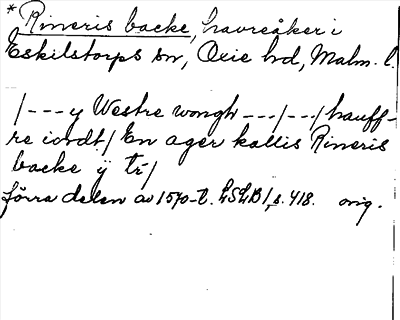 *Rineris backe, havreåker i
Eskilstorps sn, Oxie hd, Malm. l.
/---y Westre wongh ---/--/hauff-
re iordt/ En ager kallis Rineris
backe ÿ tr/
förra delen av 1570-t. LSLB1, s. 418. orig.